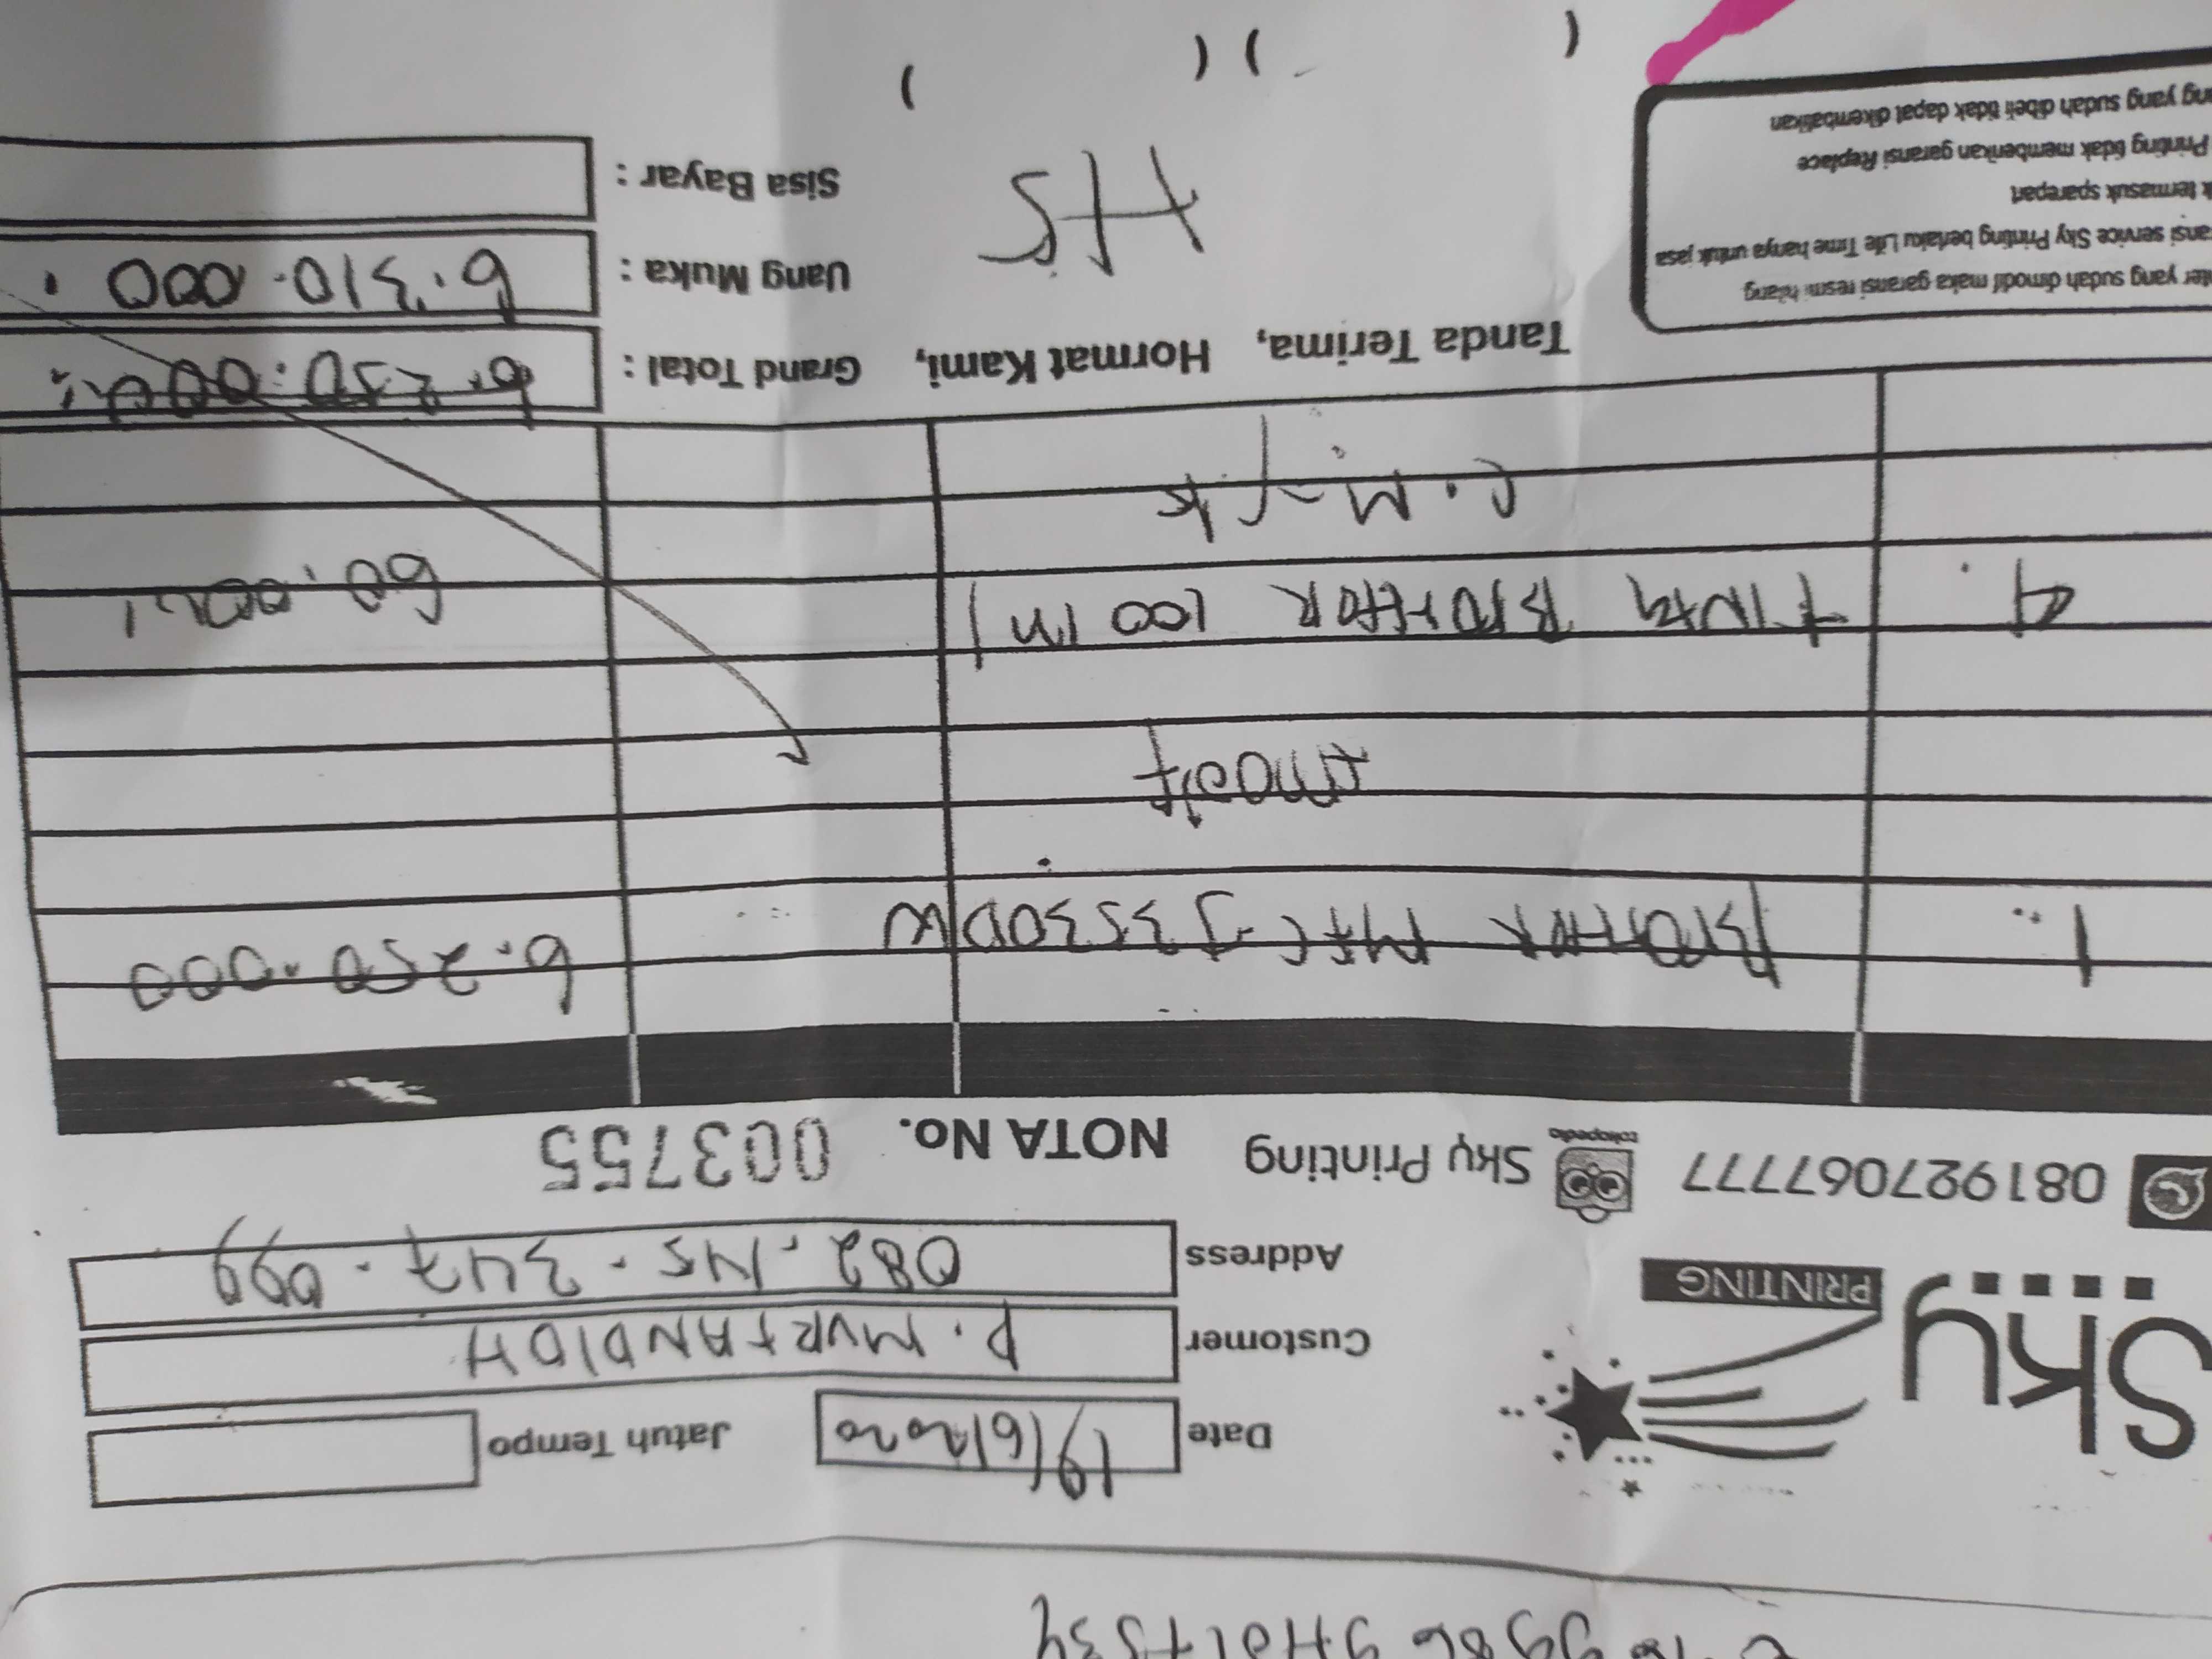 Sky
PRINTING
Date 19/6/2020 Jatuh Tempo
Customer P. MURTANDIOH
Address 082.145.347.099
081927067777 tokopedia Sky Printing NOTA No. 003755
1 BROTHER MFC-J3530DW 6.250.000
+modif
4. TINTA BROTHER 100 ml 60.000,
C.M.Y.K
Tanda Terima, Hormat Kami, Grand Total : 6.250.000,
Uang Muka : 6.310.000,
Sisa Bayar :
yang sudah dimodif maka garansi resmi hilang
service Sky Printing berlaku Life Time hanya untuk jasa
termasuk sparepart
Printing tidak memberikan garansi Replace
yang sudah dibeli tidak dapat dikembalikan
( ) ( )